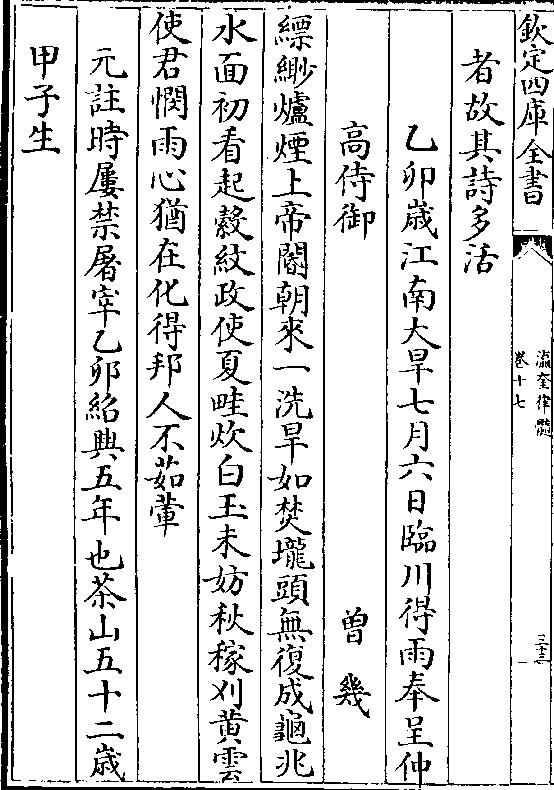 欽定四庫全書
瀛奎律髓
卷十七
三十二
者故其詩多活
乙卯歲江南大旱七月六日臨川得雨奉呈仲
高侍御 曾幾
縹緲爐煙上帝閽朝來一洗旱如焚壠頭無復成龜兆
水面初看起縠紋政使夏畦炊白玉未妨秋稼刈黃雲
使君憫雨心猶在化得邦人不茹葷
元註時屢禁屠宰乙卯紹興五年也茶山五十二歲
甲子生